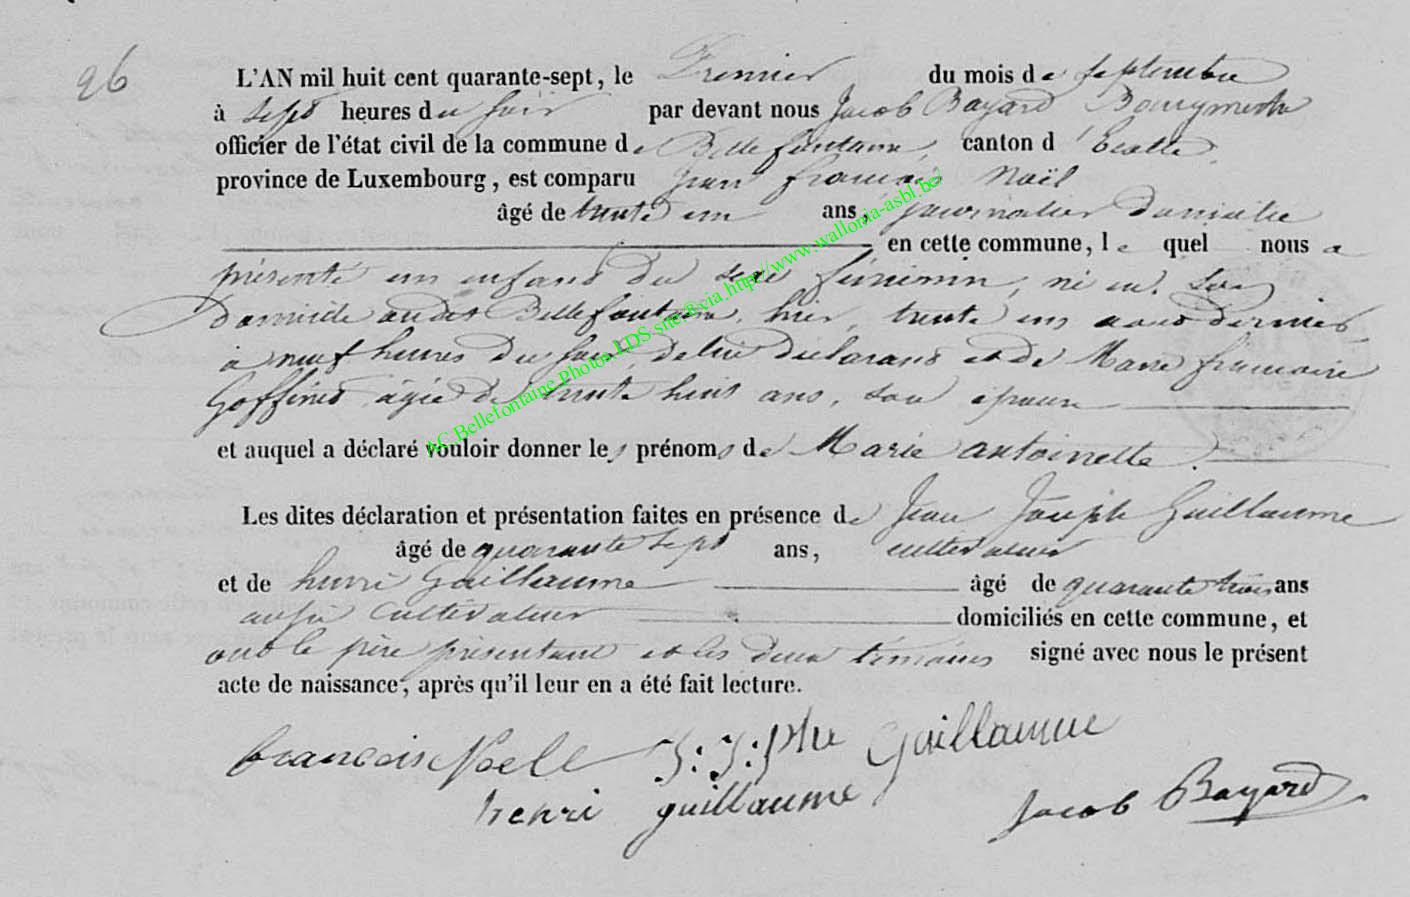 26
L'AN mil huit cent quarante-sept, le Premier du mois de septembre
à sept heures du soir par devant nous Jacob Bayard Bourgmestre
officier de l'état civil de la commune de Bellefontaine, canton d'Etalle,
province de Luxembourg, est comparu Jean françois Noël
âgé de trente un ans, journalier domicilié
en cette commune, le quel nous a
présenté un enfant du sexe féminin, né en son
Domicile audit Bellefontaine, hier, trente un aout dernier,
à neuf heures du soir, de lui déclarant et de Marie françoise
Goffinet âgée de trente huit ans, son épouse
et auquel a déclaré vouloir donner les prénoms de Marie antoinette.
Les dites déclaration et présentation faites en présence de Jean Joseph Guillaume
âgé de quarante sept ans, cultivateur
et de henri Guillaume âgé de quarante trois ans
aussi cultivateur domiciliés en cette commune, et
ont le père présentant et les deux témoins signé avec nous le présent
acte de naissance, après qu'il leur en a été fait lecture.
francois Noell J: J: phe Guillaume
henri guillaume Jacob Bayard
AC Bellefontaine Photos LDS-site® via http://www.wallonia-asbl.be/